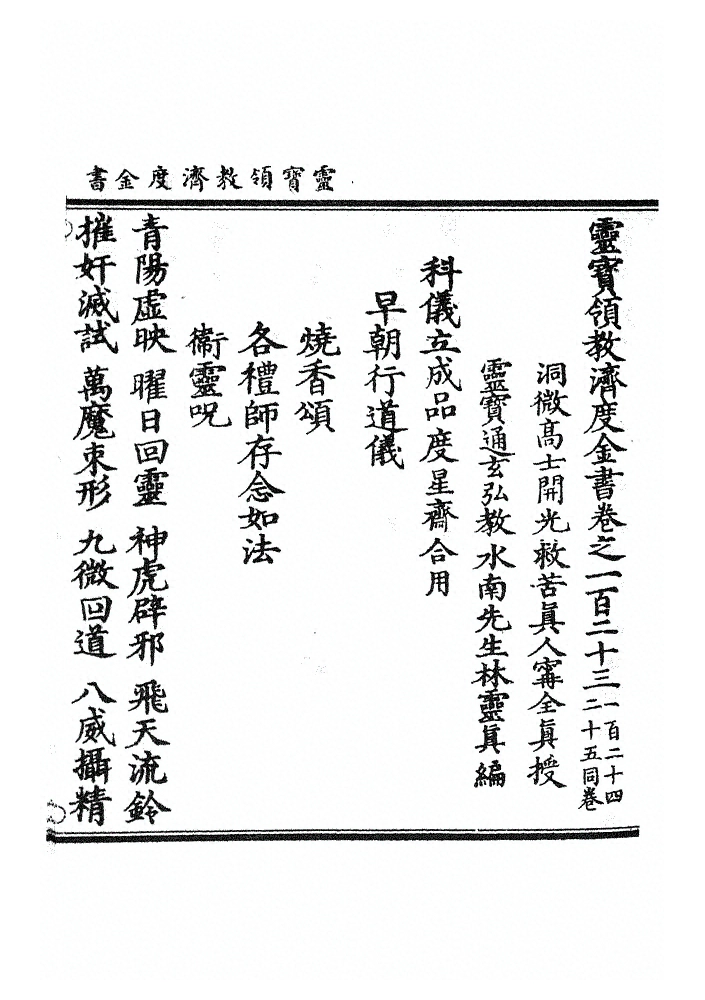 靈寶領教濟度金書
靈寶領教濟度金書卷之一百二十三一百二十四二十五同卷
洞微高士開光救苦眞人甯全眞授
靈寶通玄弘教水南先生林靈眞編
科儀立成品度星齋合用
早朝行道儀
燒香頌
各禮師存念如法
衞靈呪
青陽虛映 曜日回靈 神虎辟邪 飛天流鈴
摧奸滅試 萬魔束形 九微回道 八威攝精